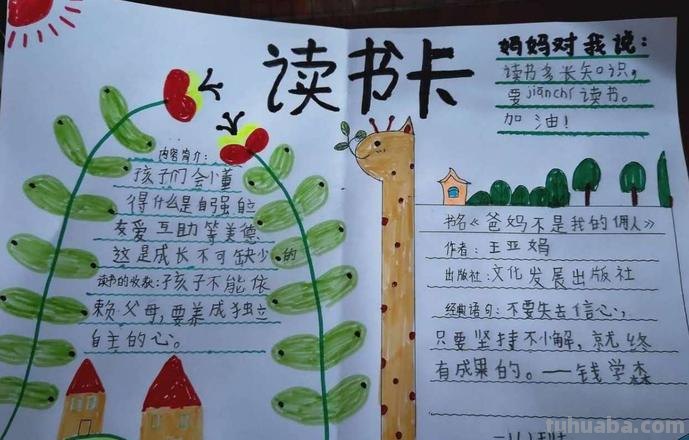 读书卡
妈妈对我说：
读书多长知识，
要jianchi读书。
加油！
内容简介：
孩子们会懂
得什么是自强自立
友爱互助等美德
这是成长不可缺少的
读书的收获：孩子不能依
赖父母，要养成独立
自主的心。
书名《爸妈不是我的佣人》
作者：王亚妈
出版社：文化发展出版社
经典语句：不要失去信心，
只要坚持不小解，就终
有成果的。——钱学森
tuhuaba.com